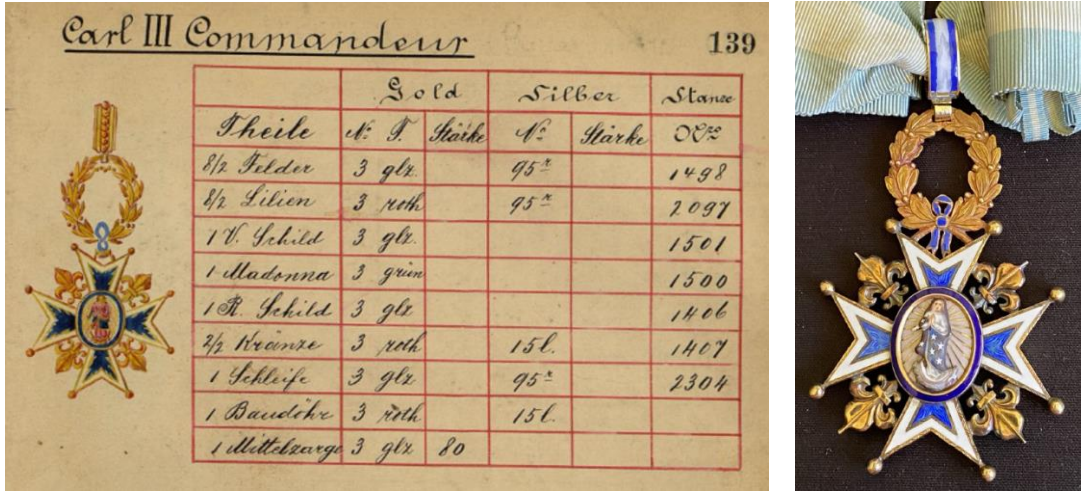 Carl III Commandeur 139
Gold Silber Stanze
Theile No. F. Stärke No Stärke
8/2 Felder 3 glz. 95 1498
8/2 Lilien 3 roth 95 2097
1 V. Schild 3 glz. 1501
1 Madonna 3 grün 1500
1 R. Schild 3 glz 1406
2/2 Kränze 3 roth 15l. 1407
1 Schleife 3 glz 95 2304
1 Bandöhr 3 roth 15l.
1 Mittelzarge 3 glz 80